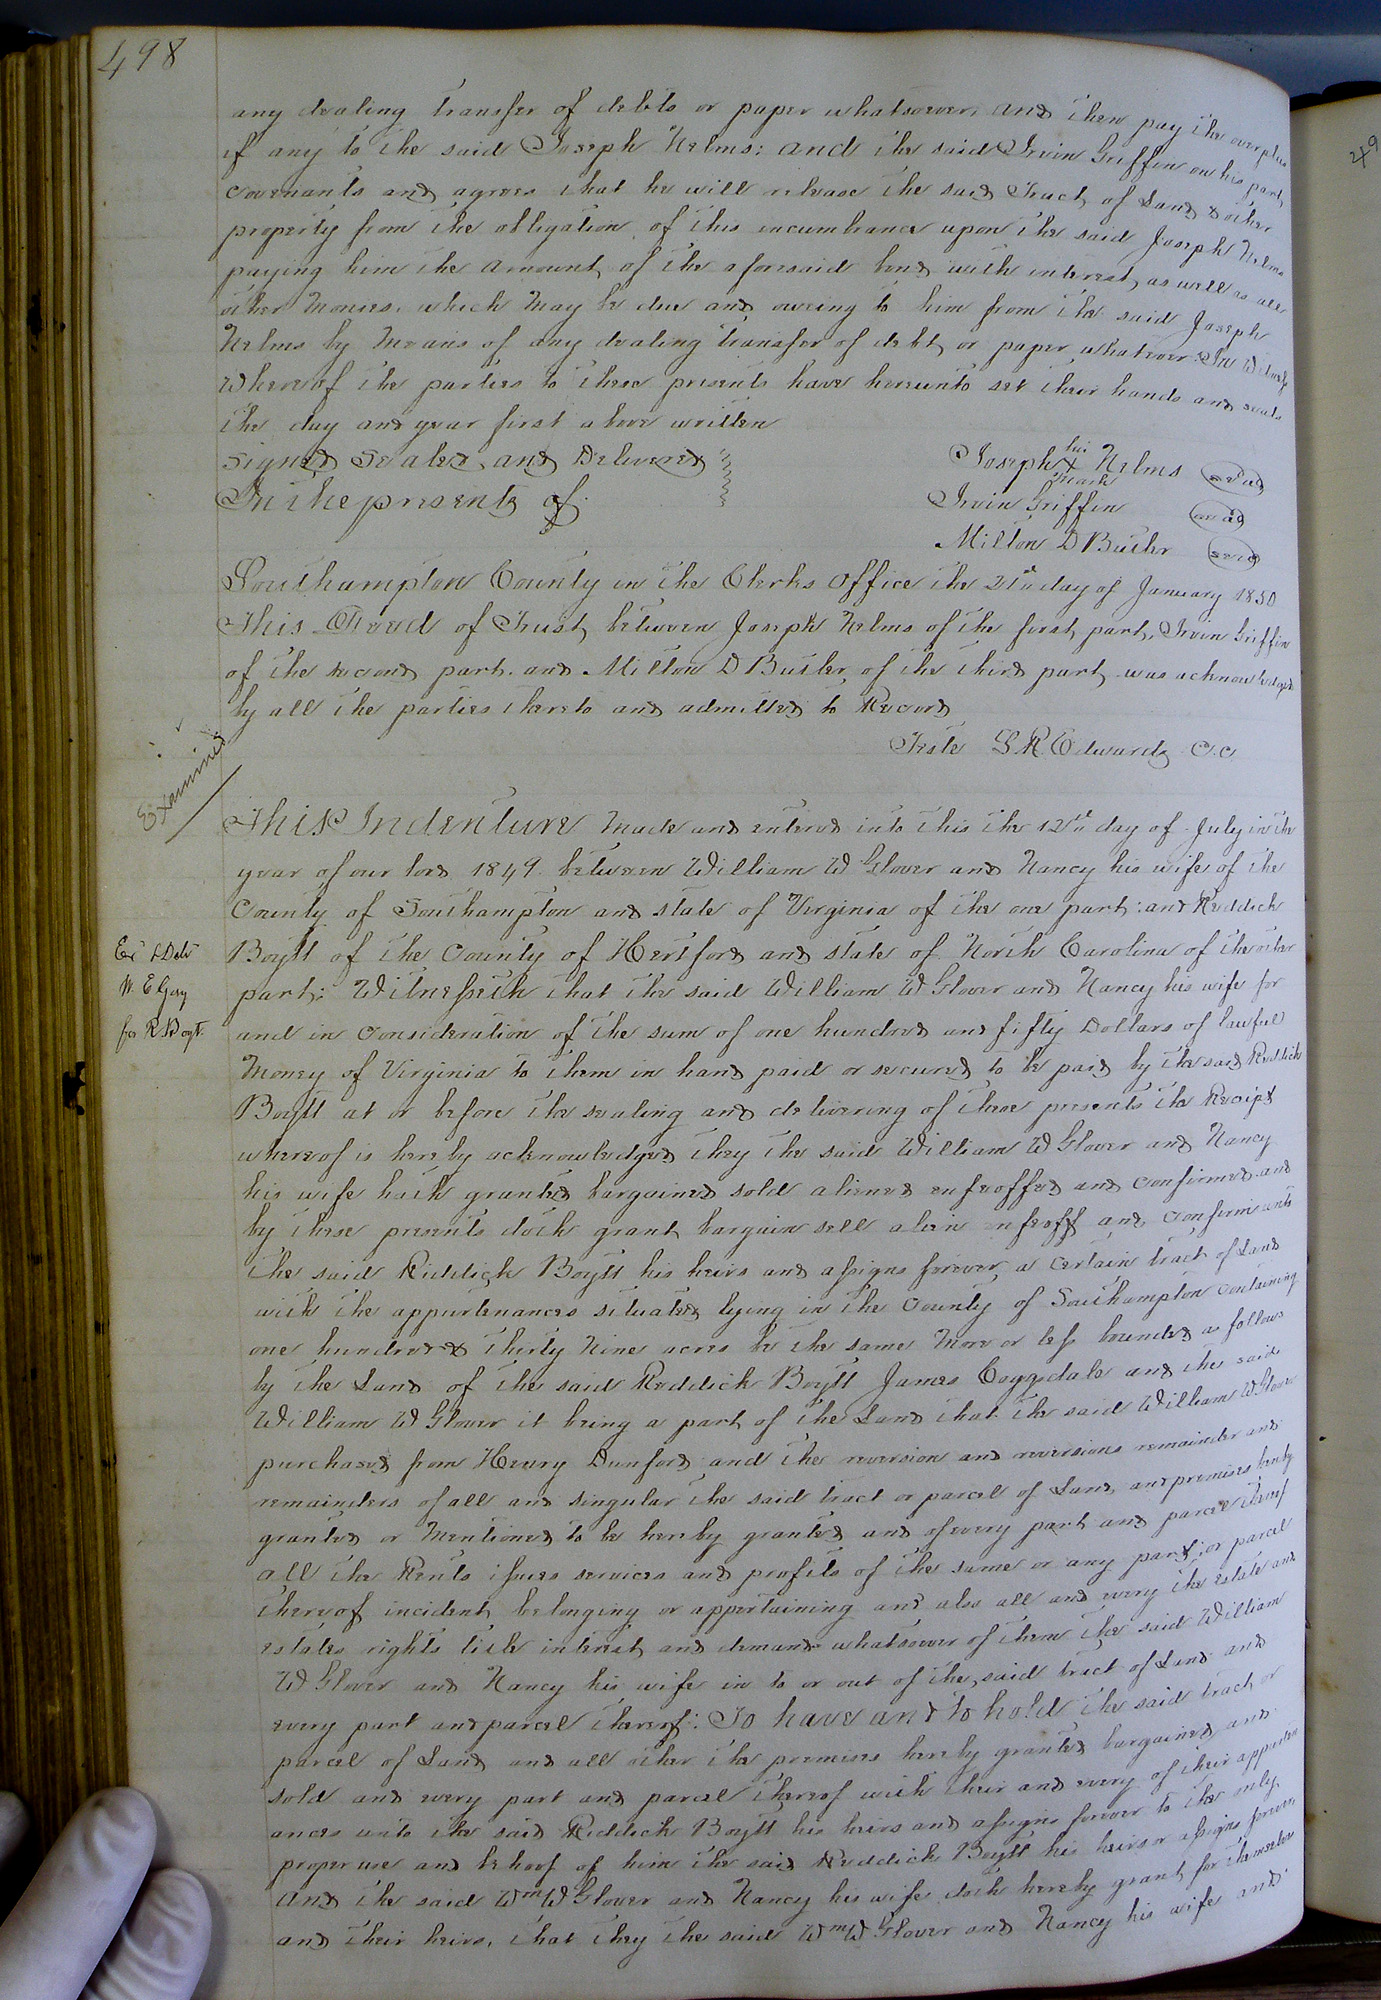 498
any dealing transfer of debts or paper whatsoever, and then pay the overplus
if any to the said Joseph Nelms; and the said Irvin Griffin on his part
covenants and agrees that he will release the said Tract of Land & other
property from the obligation of this incumbrance upon the said Joseph Nelms
paying him the amount of the aforesaid bond with interest, as well as all
other monies which may be due and owing to him from the said Joseph
Nelms by means of any dealing transfer of debt or paper whatever: In Witness
whereof the parties to these presents have hereunto set their hands and seals
the day and year first above written
Signed Sealed and Delivered
In the presents of
his
Joseph X Nelms seal
mark
Irvin Griffin seal
Milton D Butler seal
Southampton County in the Clerks Office the 21st day of January 1850
This Deed of Trust between Joseph Nelms of the first part, Irvin Griffin
of the second part and Milton D Butler of the third part was acknowledged
by all the parties thereto and admitted to Record
Teste L R Edwards C.C
Examined
This Indenture made and entered into this the 12th day of July in the
year of our lord 1849 between William W Glover and Nancy his wife of the
County of Southampton and state of Virginia of the one part: and Reddick
Boytt of the County of Hertford and state of North Carolina of the other
Ex & Deld
W. E Gay
for R Boyt
part: Witnesseth that the said William W Glover and Nancy his wife for
and in consideration of the sum of one hundred and fifty Dollars of lawful
money of Virginia to them in hand paid or secured to be paid by the said Reddick
Boytt at or before the sealing and delivering of these presents the Receipt
whereof is hereby acknowledged they the said William W Glover and Nancy
his wife hath granted bargained sold aliened enfeoffed and confirmed and
by these presents doth grant bargain sell alein enfeoff and confirm unto
the said Riddick Boytt his heirs and assigns forever a certain tract of Land
with the appurtenances situated lying in the County of Southampton containing
one hundred & thirty nine acres be the same more or less bounded as follows
by the Land of the said Reddick Boytt James Coggsdale and the said
William W Glover it being a part of the Land that the said William W Glover
purchased from Henry Dunford and the reversion and reversions remainder and
remainders of all and singular the said tract or parcel of Land and premises hereby
granted or mentioned to be hereby granted and of every part and parcel thereof
all the Rents issues services and profits of the same or any part or parcel
thereof incident, belonging or appertaining and also all and every the estate and
estates rights title interest and demand whatsoever of them the said William
W Glover and Nancy his wife in to or out of the said tract of Land and
every part and parcel thereof: To have and to hold the said tract or
parcel of Land and all other the premises hereby granted bargained and
sold and every part and parcel thereof with their and every of their appurten
ances unto the said Riddick Boytt his heirs and assigns forever to the only
proper use and behoof of him the said Reddick Boytt his heirs or assigns forever,
and the said Wm W Glover and Nancy his wife doth hereby grant for themselves
and their heirs, that they the said Wm W Glover and Nancy his wife and